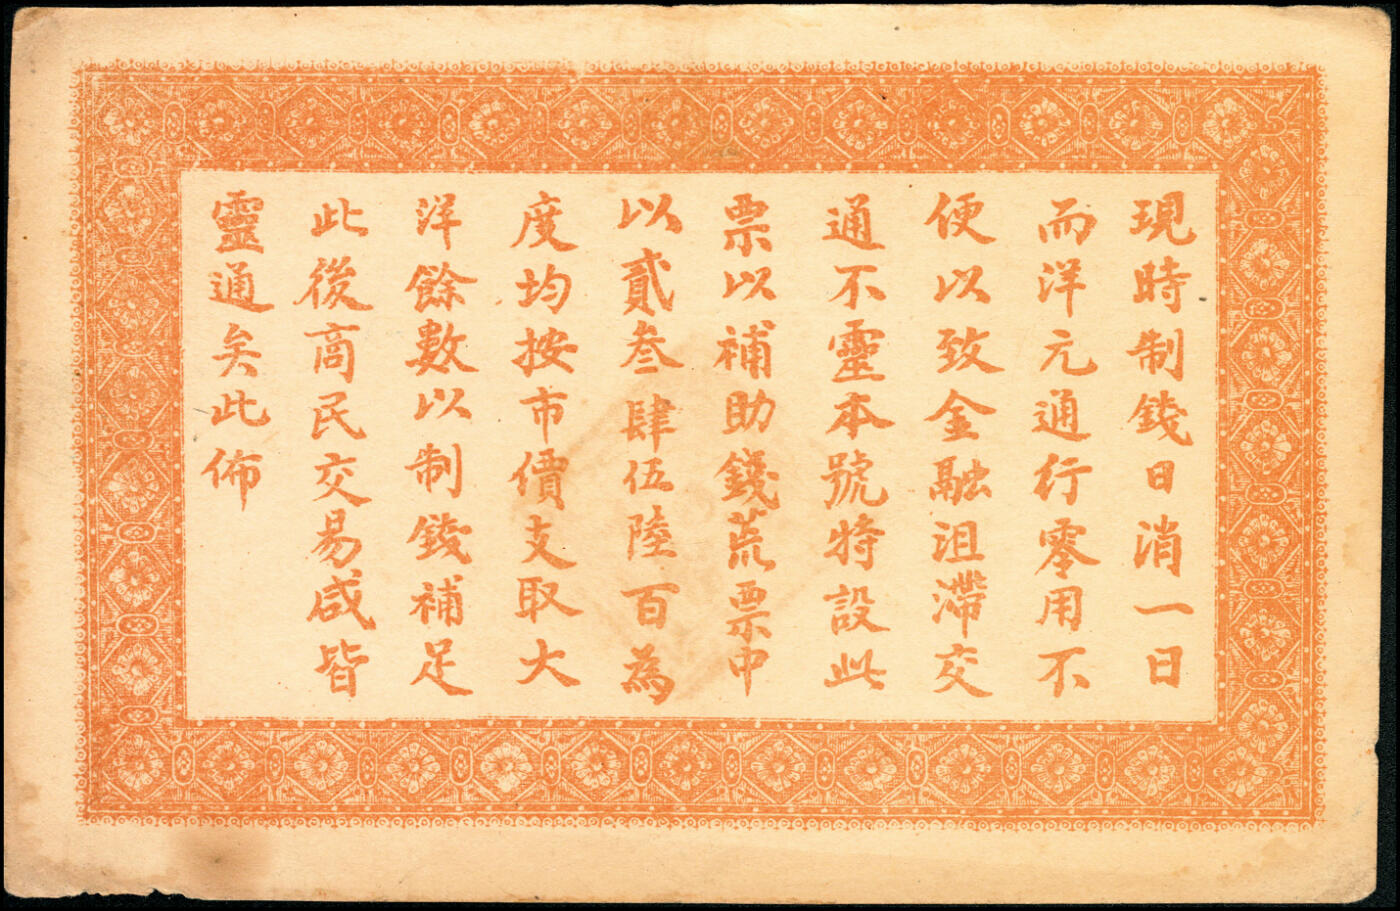 現時制錢日消一日
而洋元通行零用不
便以致金融沮滯交
通不靈本號特設此
票以補助錢荒票中
以貳叁肆伍陸百為
度均按市價支取大
洋餘數以制錢補足
此後商民交易咸皆
靈通矣此佈